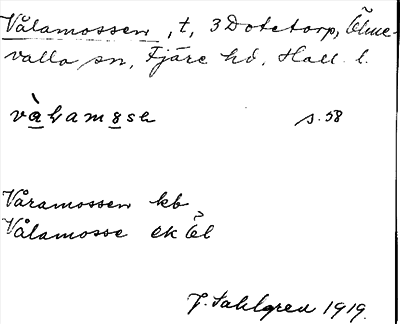 Vålamossen, t, 3 Dotetorp, Ölme-
valla sn, Fjäre hd, Hall. l.
s. 58
Våramossen kb
Vålamosse ek Öl
J. Sahlgren 1919.